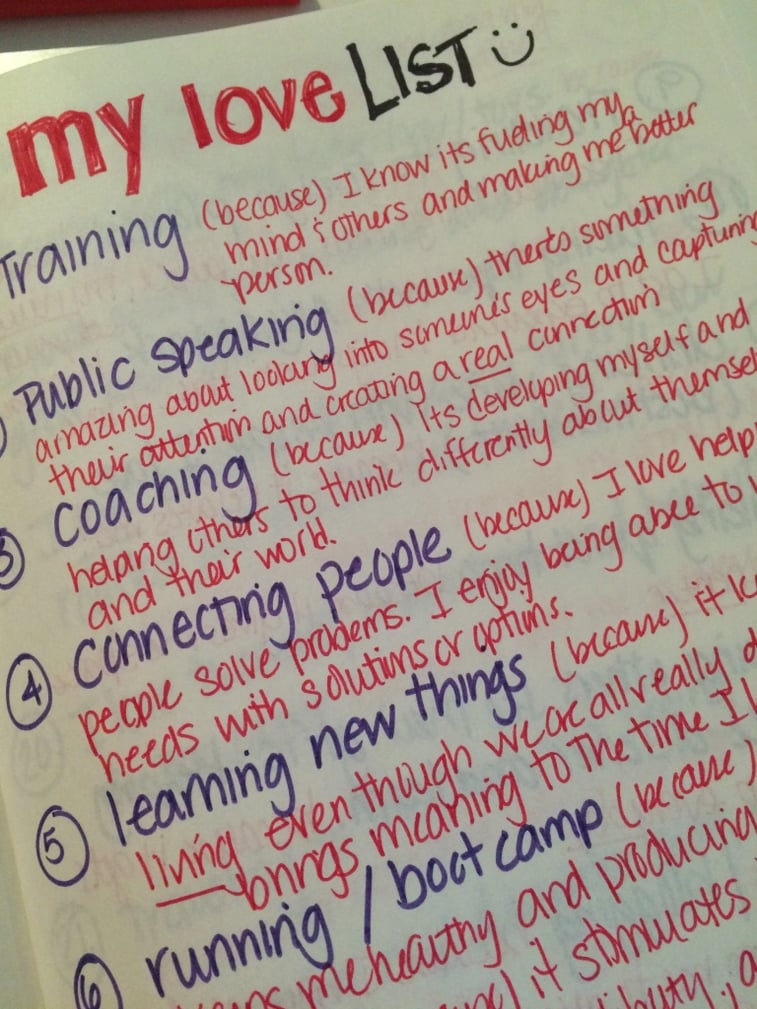 my love LIST
Training (because) I know its fueling my
mind & others and making me a better
person.
Public speaking (because) there's something
amazing about looking into someone's eyes and capturing
their attention and creating a real connection
3 Coaching (because) Its developing myself and
helping others to think differently about themsel
and their world.
4 Connecting people (because) I love help
people solve problems. I enjoy being able to
needs with solutions or options.
5 learning new things (because) it k
living even though we are all really d
brings meaning to the time I
6 running / boot camp (because)
me healthy and producing
it stimulates